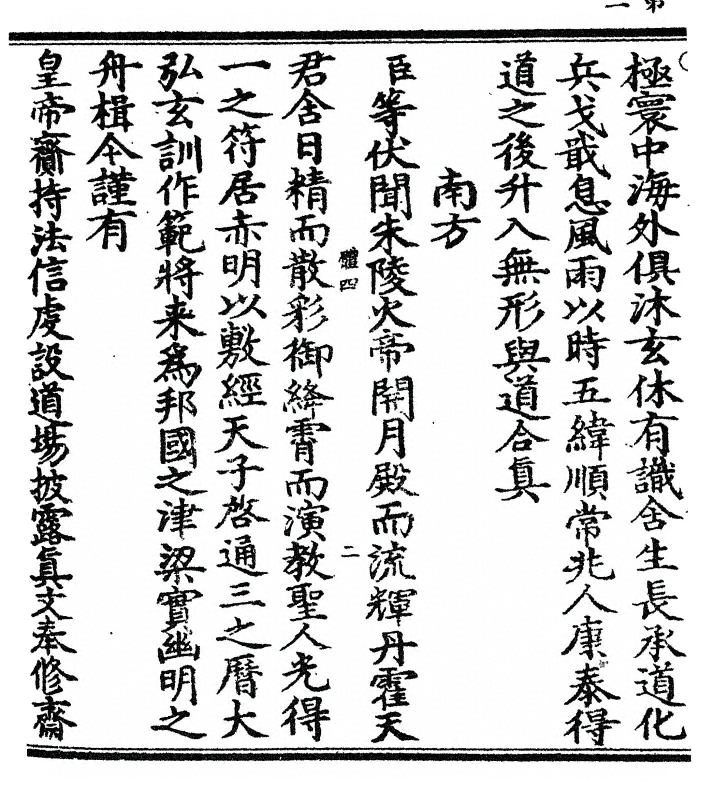 極寰中海外俱沐玄休有識含生長承道化
兵戈戢息風雨以時五緯順常兆人康泰得
道之後升入無形與道合眞
南方
臣等伏聞朱陵火帝開月殿而流輝丹霍天
體四 二
君含日精而散彩御絳霄而演教聖人光得
一之符居赤明以敷經天子啓通三之曆大
弘玄訓作範將来爲邦國之津梁實幽明之
舟楫今謹有
皇帝齎持法信虔設道場披露眞文奉修齋